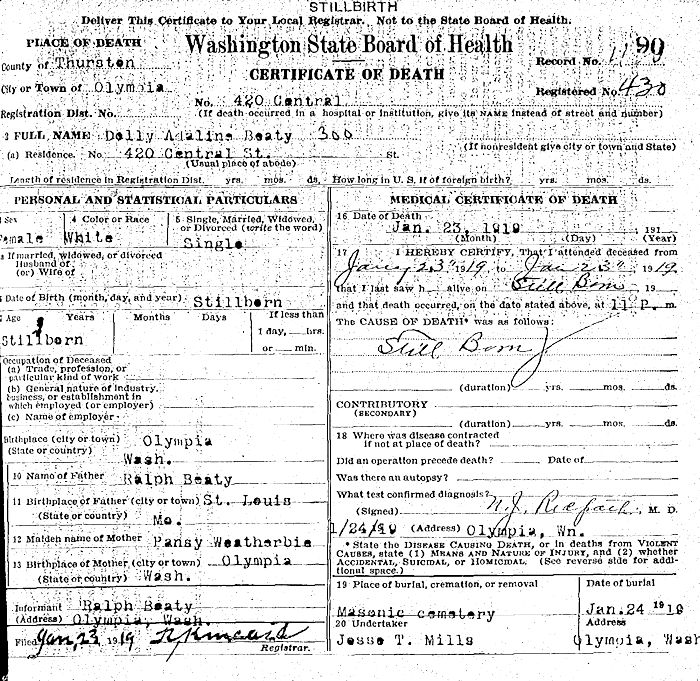 STILLBIRTH
Deliver This Certificate to Your Local Registrar. Not to the State Board of Health.
PLACE OF DEATH
Washington State Board of Health
County of Thurston
CERTIFICATE OF DEATH
Record No. 90
City or Town of Olympia
Registered No. 430
No. 420 Central
Registration Dist. No.
(If death occurred in a hospital or institution, give its NAME instead of street and number)
2 FULL NAME Dolly Adaline Beaty 300
(a) Residence. No. 420 Central St. St.
(If nonresident give city or town and State)
(Usual place of abode)
Length of residence in Registration Dist. yrs. mos. ds. How long in U. S. if of foreign birth? yrs. mos. ds.
PERSONAL AND STATISTICAL PARTICULARS
Sex
4 Color or Race
5 Single, Married, Widowed, or Divorced (write the word)
emale White Single
If married, widowed, or divorced
Husband of
(or) Wife of
Date of Birth (month, day, and year) Stillborn
Age Years Months Days If less than
1 day, hrs.
or min.
Stillborn
Occupation of Deceased
(a) Trade, profession, or
particular kind of work
(b) General nature of industry,
business, or establishment in
which employed (or employer)
(c) Name of employer
Birthplace (city or town) Olympia
(State or country) Wash.
10 Name of Father Ralph Beaty
11 Birthplace of Father (city or town) St. Louis
(State or country) Mo.
12 Maiden name of Mother Pansy Weatherbie
13 Birthplace of Mother (city or town) Olympia
(State or country) Wash.
Informant Ralph Beaty
(Address) Olympia, Wash.
Filed Jan, 23, 1919
Registrar.
MEDICAL CERTIFICATE OF DEATH
16 Date of Death
Jan. 23, 1919 191
(Month) (Day) (Year)
17 I HEREBY CERTIFY, That I attended deceased from
Jany 23d 1919 to Jan 23d 1919
that I last saw h alive on Still Born 19
and that death occurred, on the date stated above, at 11 P. m.
The CAUSE OF DEATH* was as follows:
Still Born
(duration) yrs. mos. ds.
CONTRIBUTORY
(SECONDARY)
(duration) yrs. mos. ds.
18 Where was disease contracted
if not at place of death?
Did an operation precede death? Date of
Was there an autopsy?
What test confirmed diagnosis?
(Signed) N.J. Redpath, M. D.
1/24/19 (Address) Olympia, Wn.
* State the DISEASE CAUSING DEATH, or in deaths from VIOLENT
CAUSES, state (1) MEANS AND NATURE OF INJURY, and (2) whether
ACCIDENTAL, SUICIDAL, or HOMICIDAL. (See reverse side for addi-
tional space.)
19 Place of burial, cremation, or removal
Date of burial
Masonic cemetery
Jan.24 1919
20 Undertaker
Address
Jesse T. Mills
Olympia, Wash